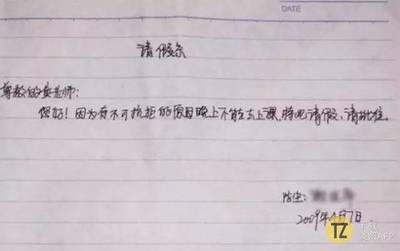 DATE
请假条
尊敬的安老师:
您好!因为有不可抗拒的原因晚上不能去上课,特此请假,请批准。
2009年 月7日.
TZ